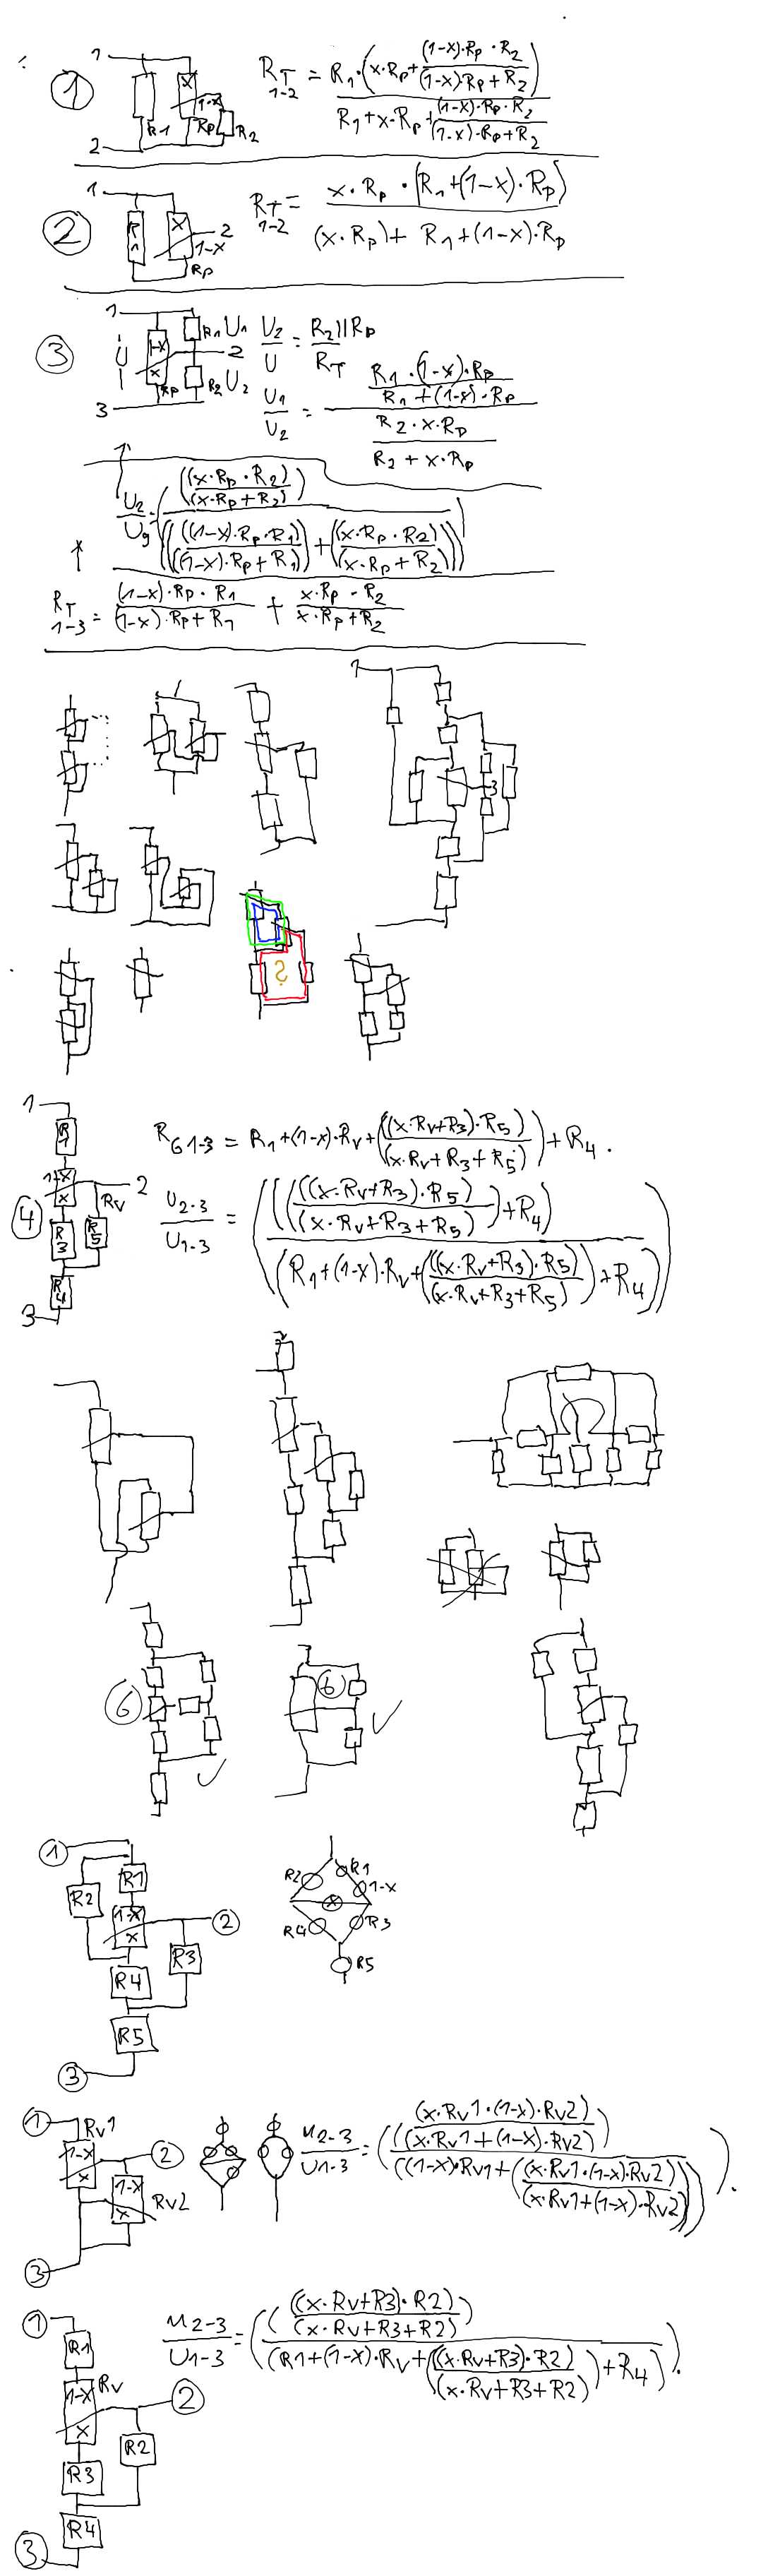 1
1
2
R1
x
1-x
Rp
R2
RT 1-2 = R1·(x·Rp+((1-x)·Rp·R2)/((1-x)·Rp+R2)) / R1+x·Rp+((1-x)·Rp·R2)/((1-x)·Rp+R2)
2
1
R1
x
2
1-x
Rp
RT 1-2 = x·Rp·(R1+(1-x)·Rp) / (x·Rp)+R1+(1-x)·Rp
3
1
U
1-x
x
Rp
R1 U1
2
R2 U2
3
U2/U = R2||Rp / RT
U1/U2 = (R1·(1-x)·Rp / R1+(1-x)·Rp) / (R2·x·Rp / R2+x·Rp)
U2/Ug = (((x·Rp·R2)/(x·Rp+R2)) / ((((1-x)·Rp·R1)/((1-x)·Rp+R1))+((x·Rp·R2)/(x·Rp+R2))))
RT 1-3 = (1-x)·Rp·R1 / (1-x)·Rp+R1 + x·Rp·R2 / x·Rp+R2
1
3
?
4
1
R1
1-x
x
2
Rv
R3
R5
R4
3
RG1-3 = R1+(1-x)·Rv+(((x·Rv+R3)·R5)/(x·Rv+R3+R5))+R4.
U2-3/U1-3 = (((((x·Rv+R3)·R5)/(x·Rv+R3+R5))+R4) / (R1+(1-x)·Rv+(((x·Rv+R3)·R5)/(x·Rv+R3+R5))+R4))
6
6
1
R1
R2
1-x
x
2
R3
R4
R5
3
R2
R1
1-x
x
R4
R3
R5
1
Rv1
1-x
x
2
1-x
x
Rv2
3
U2-3/U1-3 = (((x·Rv1·(1-x)·Rv2)/(x·Rv1+(1-x)·Rv2)) / ((1-x)·Rv1+((x·Rv1·(1-x)·Rv2)/(x·Rv1+(1-x)·Rv2)))).
1
R1
Rv
1-x
x
2
R2
R3
R4
3
U2-3/U1-3 = ((((x·Rv+R3)·R2)/(x·Rv+R3+R2)) / (R1+(1-x)·Rv+(((x·Rv+R3)·R2)/(x·Rv+R3+R2))+R4)).